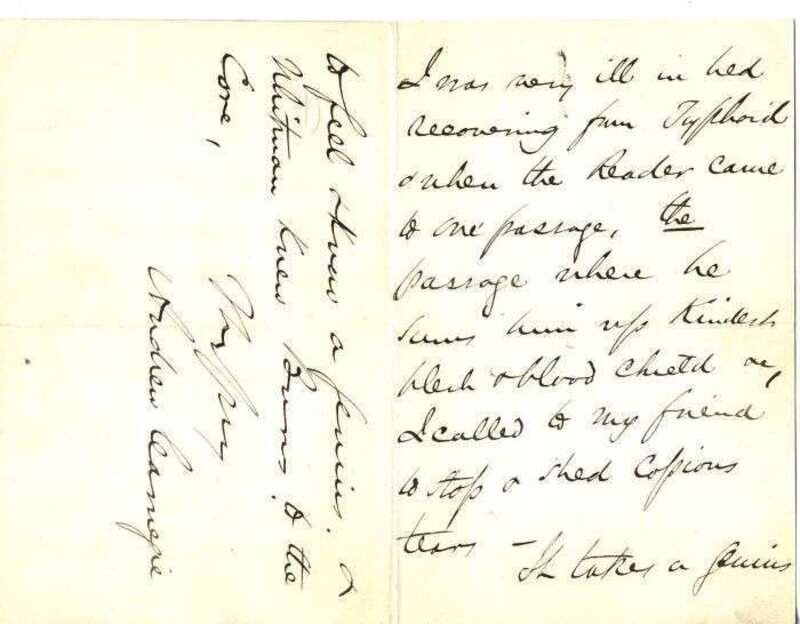 I was very ill in bed
recovering from Typhoid
& when the Reader came
to one passage, the
passage where he
sums him up Kindest
flesh & blood chield &c,
I called to my friend
to stop & shed Copious
tears —
It takes a genius
to feel & know a genius. &
Whitman knew Burns. to the
Core,
Andrew Carnegie